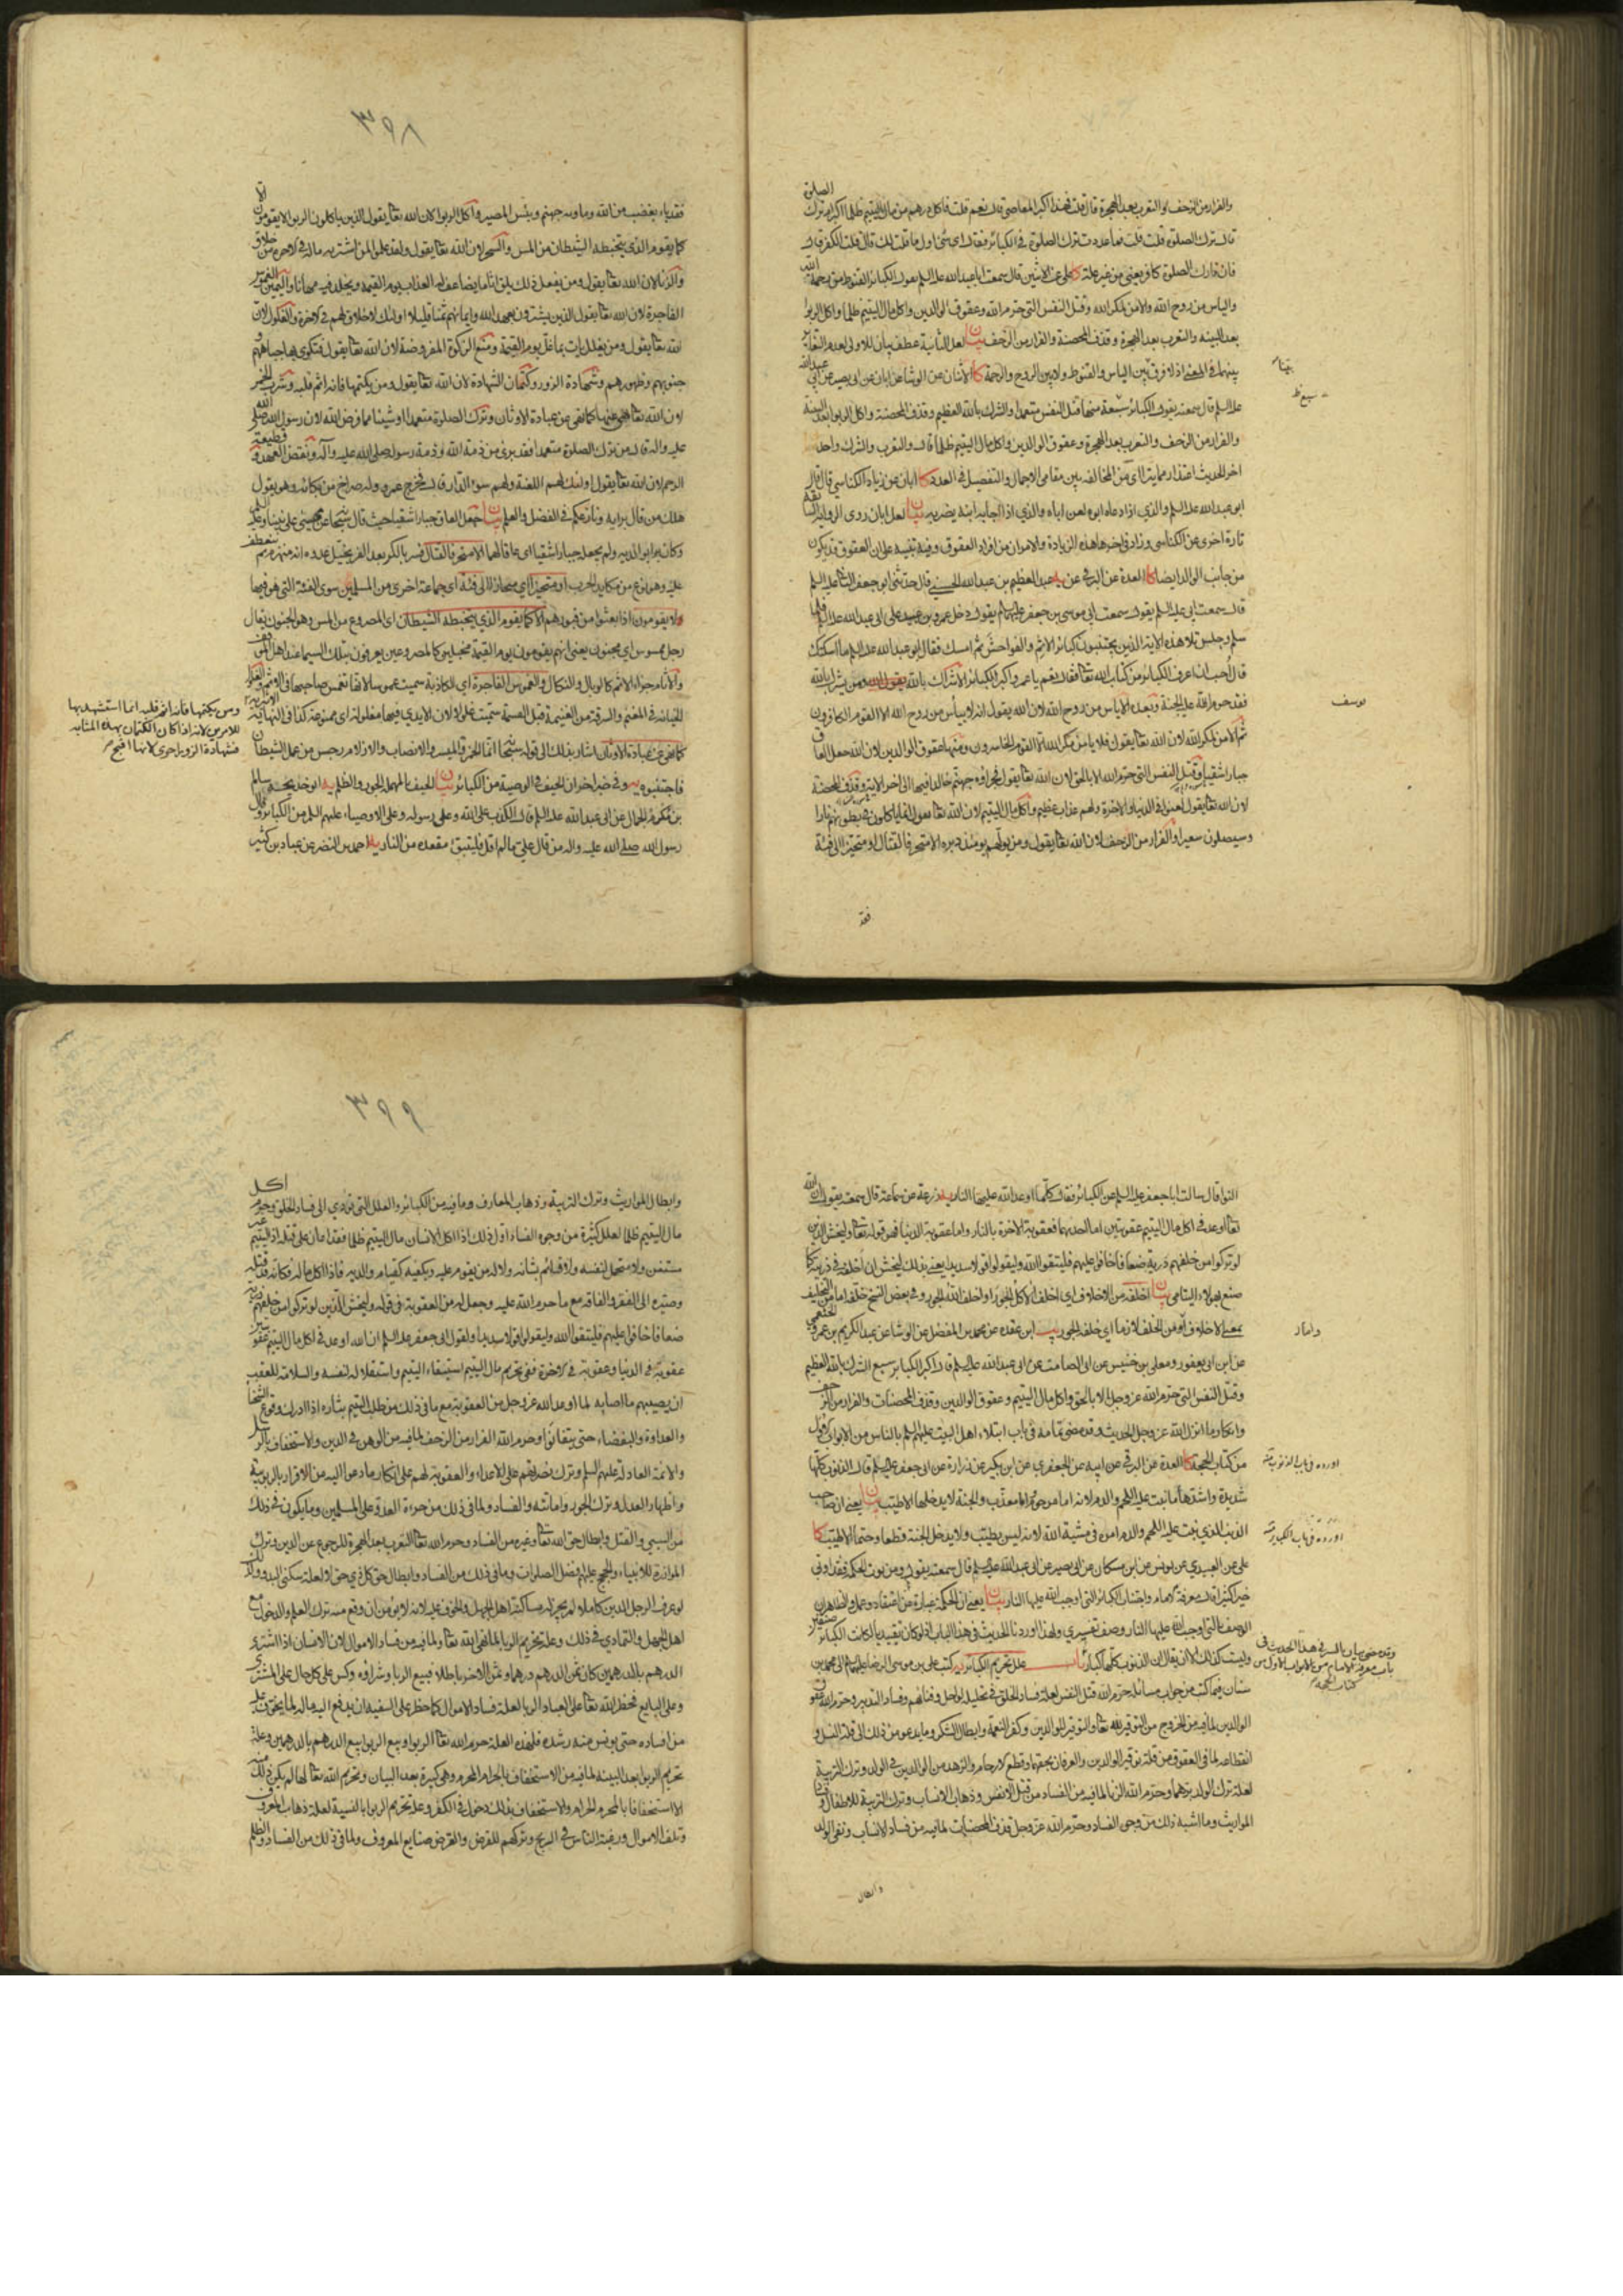 والفرار من الزحف والتعرب بعد الهجرة قال قلت فهذا اكبر المعاصي قال نعم قلت فاكل درهم من مال اليتيم ظلما اكبر ام ترك الصلوة
قال ترك الصلوة قلت فما عددت ترك الصلوة في الكبائر فقال اي شئ اول ما قلت لك قال قلت الكفر قال
فان تارك الصلوة كافر يعني من غير علة كا علي عن الاثنين قال سمعت ابا عبد الله عليه السلم يقول الكبائر القنوط من رحمة الله
والياس من روح الله والامن لمكر الله وقتل النفس التي حرم الله وعقوق الوالدين واكل مال اليتيم ظلما واكل الربوا
بعد البينة والتعرب بعد الهجرة وقذف المحصنة والفرار من الزحف بيان لعل الثانية عطف بيان للاولى لعدم التغاير
بينهما في المعنى اذ لا فرق بين الياس والقنوط ولا بين الروح والرحمة كا الاثنان عن الوشا عن ابان عن ابي بصير عن ابي عبد الله
عليه السلم قال سمعته يقول الكبائر سبعة منها قتل النفس متعمدا والشرك بالله العظيم وقذف المحصنة واكل الربوا بعد البينة
والفرار من الزحف والتعرب بعد الهجرة وعقوق الوالدين واكل مال اليتيم ظلما قال والتعرب والشرك واحد
ابو عبد الله عليه السلم والذي اذا دعاه ابوه لعن اباه والذي اذا اجابه ابنه يضربه بيان لعل ابان روى الرواية
تارة اخرى عن الكناسي وزاد في اخرها هذه الزيادة والامران من افراد العقوق وفيه تنبيه على ان العقوق قد يكون
من جانب الوالد ايضا كا العدة عن البرقي عن عبد العظيم بن عبد الله الحسني قال حدثني ابو جعفر الثاني عليه السلم
قال سمعت ابي عليه السلم يقول سمعت ابي موسى بن جعفر عليهما السلم يقول دخل عمرو بن عبيد على ابي عبد الله عليه السلم فلما
سلم وجلس تلا هذه الاية الذين يجتنبون كبائر الاثم والفواحش ثم امسك فقال ابو عبد الله عليه السلم ما اسكتك
قال احب ان اعرف الكبائر من كتاب الله تعالى فقال نعم يا عمرو اكبر الكبائر الاشراك بالله يقول الله ومن يشرك بالله
فقد حرم الله عليه الجنة وبعده الاياس من روح الله لان الله يقول انه لا ييأس من روح الله الا القوم الكافرون
ثم الامن لمكر الله لان الله تعالى يقول فلا يامن مكر الله الا القوم الخاسرون ومنها عقوق الوالدين لان الله جعل العاق
جبارا شقيا وقتل النفس التي حرم الله الا بالحق لان الله تعالى يقول فجزاؤه جهنم خالدا فيها الى اخر الاية وقذف المحصنة
لان الله تعالى يقول لعنوا في الدنيا والاخرة ولهم عذاب عظيم واكل مال اليتيم لان الله تعالى يقول انما ياكلون في بطونهم نارا
وسيصلون سعيرا والفرار من الزحف لان الله تعالى يقول ومن يولهم يومئذ دبره الا متحرفا لقتال او متحيزا الى فئة
فقد
٣٩٨
فقد باء بغضب من الله وماويه جهنم وبئس المصير واكل الربوا لان الله تعالى يقول الذين ياكلون الربوا لا يقومون الا
كما يقوم الذي يتخبطه الشيطان من المس والسحر لان الله تعالى يقول ولقد علموا لمن اشتريه ماله في الاخرة من خلاق
والزنا لان الله تعالى يقول ومن يفعل ذلك يلق اثاما يضاعف له العذاب يوم القيمة ويخلد فيه مهانا واليمين الغموس
الفاجرة لان الله تعالى يقول الذين يشترون بعهد الله وايمانهم ثمنا قليلا اولئك لا خلاق لهم في الاخرة والغلول لان
الله تعالى يقول ومن يغلل يات بما غل يوم القيمة ومنع الزكوة المفروضة لان الله تعالى يقول فتكوى بها جباههم و
جنوبهم وظهورهم وشهادة الزور وكتمان الشهادة لان الله تعالى يقول ومن يكتمها فانه اثم قلبه وشرب الخمر
لان الله تعالى نهى عنها كما نهى عن عبادة الاوثان وترك الصلوة متعمدا او شيئا مما فرض الله لان رسول الله صلى الله
عليه واله قال من ترك الصلوة متعمدا فقد برئ من ذمة الله وذمة رسوله صلى الله عليه وآله ونقض العهد وقطيعة
الرحم لان الله تعالى يقول اولئك لهم اللعنة ولهم سوء الدار قال فخرج عمرو وله صراخ من بكائه وهو يقول
هلك من قال برايه ونازعكم في الفضل والعلم بيان جعل العاق جبارا شقيا حيث قال سبحانه عن عيسى على نبينا وعليه السلم
وكان برا بوالديه ولم يجعله جبارا شقيا اي عاقا لهما الا متحرفا لقتال فسر بالكر بعد الفر يخيل عدوه انه منهزم ثم ينعطف
عليه وهو نوع من مكايد الحرب او متحيزا اي منحازا الى فئة اي جماعة اخرى من المسلمين سوى الفئة التي هو فيها
ولا يقومون اذا بعثوا من قبورهم الا كما يقوم الذي يتخبطه الشيطان اي المصروع من المس وهو الجنون يقال
رجل ممسوس اي مجنون يعني انهم يقومون يوم القيمة مخبلين كالمصروعين يعرفون بتلك السيما عند اهل الموقف
والاثام جزاء الاثم كالوبال والنكال والغموس الفاجرة اي الكاذبة سميت غموسا لانها تغمس صاحبها في الاثم والغلول
الخيانة في المغنم والسرقة من الغنيمة قبل القسمة سميت غلولا لان الايدي فيها مغلولة اي ممنوعة كذا في النهاية
كما نهى عن عبادة الاوثان اشار بذلك الى قوله سبحانه انما الخمر والميسر والانصاب والازلام رجس من عمل الشيطان
فاجتنبوه يه وفي خبر اخر ان الحيف في الوصية من الكبائر بيان الحيف بالمهملة الجور والظلم يه ابو خديجة سالم
بن مكرم الجمال عن ابي عبد الله عليه السلم قال الكذب على الله وعلى رسوله وعلى الاوصياء عليهم السلم من الكبائر وقال
رسول الله صلى الله عليه واله من قال علي ما لم اقل فليتبوء مقعده من النار يه احمد بن النضر عن عباد بن كثير
ومن يكتمها فانه اثم قلبه انما استشهد بها
للامرين لانه اذا كان الكتمان بهذه المثابه
فشهادة الزور احرى لانها اقبح
النوا قال سالت ابا جعفر عليه السلم عن الكبائر فقال كلما اوعد الله عليها النار يه زرعة عن سماعة قال سمعته يقول ان الله
تعالى اوعد في اكل مال اليتيم عقوبتين اما احديهما فعقوبة الاخرة بالنار واما عقوبة الدنيا فهو قوله تعالى وليخش الذين
لو تركوا من خلفهم ذرية ضعافا خافوا عليهم فليتقوا الله وليقولوا قولا سديدا يعني بذلك ليخش ان اخلفه في ذريته كما
صنع بهؤلاء اليتامى
عن ابن ابي يعفور ومعلى بن خنيس عن ابي الصامت عن ابي عبد الله عليه السلم قال اكبر الكبائر سبع الشرك بالله العظيم
وقتل النفس التي حرم الله عز وجل الا بالحق واكل مال اليتيم وعقوق الوالدين وقذف المحصنات والفرار من الزحف
وانكار ما انزل الله عز وجل الحديث وقد مضى تمامه في باب ابتلاء اهل البيت عليهم السلم بالناس من الابواب الاول
من كتاب الحجة كا العدة عن البرقي عن ابيه عن الجعفري عن ابن بكير عن زرارة عن ابي جعفر عليه السلم قال الذنوب كلها
شديدة واشدها ما نبت عليه اللحم والدم لانه اما مرحوم واما معذب والجنة لا يدخلها الا طيب بيان يعني ان صاحب
الذنب الذي نبت عليه اللحم والدم امره في مشية الله لانه ليس بطيب ولا يدخل الجنة قطعا وحتما الا الطيب كا
علي عن العبيدي عن يونس عن ابن مسكان عن ابي بصير عن ابي عبد الله عليه السلم قال سمعته يقول ومن يؤت الحكمة فقد اوتي
خيرا كثيرا قال معرفة الامام واجتناب الكبائر التي اوجب الله عليها النار
باب علل تحريم الكبائر يه كتب علي بن موسى الرضا عليهما السلم الى محمد بن
سنان فيما كتب من جواب مسائله حرم الله قتل النفس لعلة فساد الخلق في تحليله لو احل وفنائهم وفساد التدبير وحرم الله عقوق
الوالدين لما فيه من الخروج من التوقير لله تعالى والتوقير للوالدين وكفر النعمة وابطال الشكر وما يدعو من ذلك الى قلة النسل و
انقطاعه لما في العقوق من قلة توقير الوالدين والعرفان بحقهما وقطع الارحام والزهد من الوالدين في الولد وترك التربية
لعلة ترك الولد برهما وحرم الله الزنا لما فيه من الفساد من قتل الانفس وذهاب الانساب وترك التربية للاطفال وفساد
المواريث وما اشبه ذلك من وجوه الفساد وحرم الله عز وجل قذف المحصنات لما فيه من فساد الانساب ونفي الولد
وابطال
٣٩٩
وابطال المواريث وترك التربية وذهاب المعارف وما فيه من الكبائر والعلل التي تؤدي الى فساد الخلق وحرم اكل
مال اليتيم ظلما لعلل كثيرة من وجوه الفساد اول ذلك اذا اكل الانسان مال اليتيم ظلما فقد اعان على قتله اذ اليتيم غير
مستغن ولا متحمل لنفسه ولا قائم بشانه ولا له من يقوم عليه ويكفيه كقيام والديه فاذا اكل ماله فكانه قد قتله
وصيره الى الفقر والفاقة مع ما حرم الله عليه وجعل له من العقوبة في قوله وليخش الذين لو تركوا من خلفهم ذرية
ضعافا خافوا عليهم فليتقوا الله وليقولوا قولا سديدا ولقول ابي جعفر عليه السلم ان الله اوعد في اكل مال اليتيم عقوبتين
عقوبة في الدنيا وعقوبة في الاخرة ففي تحريم مال اليتيم استبقاء اليتيم واستقلاله لنفسه والسلامة للعقب
ان يصيبهم ما اصابه لما اوعد الله عز وجل من العقوبة مع ما في ذلك من طلب اليتيم بثاره اذا ادرك ووقوع الشحناء
والعداوة والبغضاء حتى يتفانوا وحرم الله الفرار من الزحف لما فيه من الوهن في الدين والاستخفاف بالرسل
والائمة العادلة عليهم السلم وترك نصرتهم على الاعداء والعقوبة لهم على انكار ما دعوا اليه من الاقرار بالربوبية
واظهار العدل وترك الجور واماتته والفساد ولما في ذلك من جراءة العدو على المسلمين وما يكون في ذلك
من السبي والقتل وابطال حق الله تعالى وغيره من الفساد وحرم الله تعالى التعرب بعد الهجرة للرجوع عن الدين وترك
الموازرة للانبياء والحجج عليهم افضل الصلوات وما في ذلك من الفساد وابطال حق كل ذي حق لا لعلة سكنى البدو ولذلك
لو عرف الرجل الدين كاملا لم يجز له مساكنة اهل الجهل والخوف عليه لانه لا يؤمن ان وقع منه ترك العلم والدخول مع
اهل الجهل والتمادي في ذلك وعلة تحريم الربا لما نهى الله تعالى ولما فيه من فساد الاموال لان الانسان اذا اشترى
الدرهم بالدرهمين كان ثمن الدرهم درهما وثمن الاخر باطلا فبيع الربا وشراؤه وكس على كل حال على المشتري
وعلى البايع فحظر الله تعالى على العباد الربا لعلة فساد الاموال كما حظر على السفيه ان يدفع اليه ماله لما يتخوف عليه
من افساده حتى يونس منه رشده فلهذه العلة حرم الله تعالى الربوا وبيع الربوا بيع الدرهم بالدرهمين وعلة
تحريم الربوا بعد البينة لما فيه من الاستخفاف بالحرام المحرم وهي كبيرة بعد البيان وتحريم الله تعالى لها لم يكن ذلك منه
الا استخفافا بالمحرم الحرام والاستخفاف بذلك دخول في الكفر وعلة تحريم الربوا بالنسية لعلة ذهاب المعروف
وتلف الاموال ورغبة الناس في الربح وتركهم للقرض والقرض صنايع المعروف ولما في ذلك من الفساد والظلم